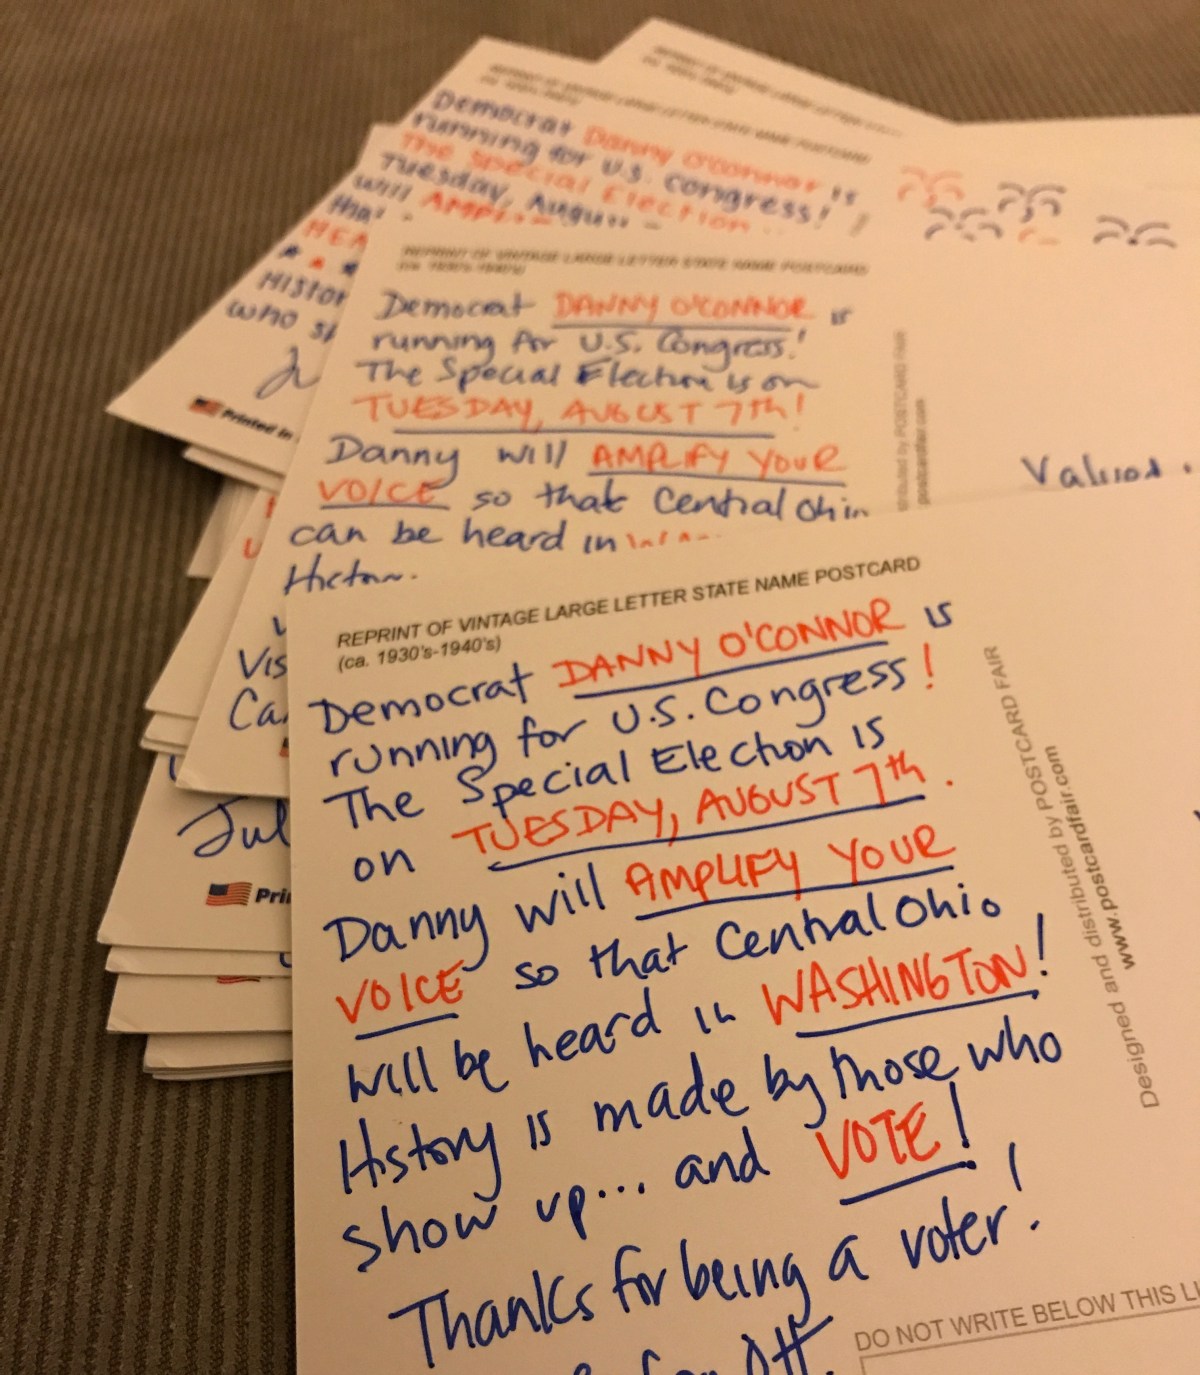 REPRINT OF VINTAGE LARGE LETTER STATE NAME POSTCARD
Democrat Danny O'Connor is
running for U.S. Congress!
The Special Election
Tuesday, August
will
that
HISTOR
who s
Printed in
REPRINT OF VINTAGE LARGE LETTER STATE NAME POSTCARD
(ca. 1930's-1940's)
Democrat DANNY O'CONNOR is
running for U.S. Congress!
The Special Election is on
TUESDAY, AUGUST 7th!
Danny will AMPLIFY YOUR
VOICE so that Central Ohio
can be heard in
postcardfair.com
Vis
Ca
Jul
Pri
REPRINT OF VINTAGE LARGE LETTER STATE NAME POSTCARD
(ca. 1930's-1940's)
Democrat DANNY O'CONNOR is
running for U.S. Congress!
The Special Election is
on TUESDAY, AUGUST 7th.
Danny will AMPLIFY YOUR
VOICE so that Central Ohio
will be heard in WASHINGTON!
History is made by those who
show up... and VOTE!
Thanks for being a voter!
Designed and distributed by POSTCARD FAIR
www.postcardfair.com
DO NOT WRITE BELOW THIS LI